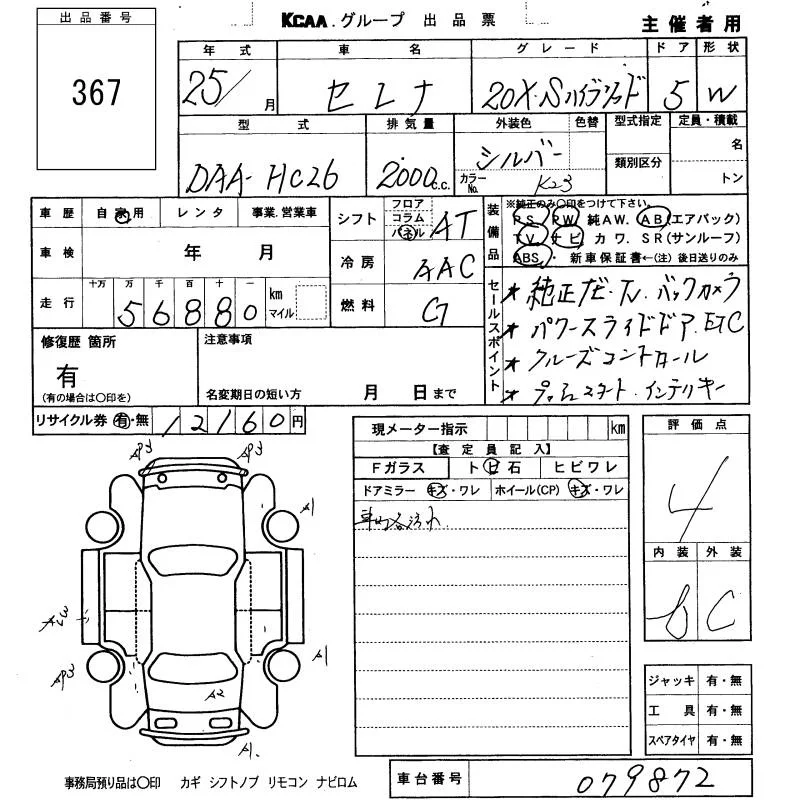 出品番号
367
KCAA.グループ 出品票
主催者用
年式 車名 グレード ドア 形状
25/ 月 セレナ 20X.Sハイブリッド 5 W
型式 排気量 外装色 色替 型式指定 定員・積載
DAA-HC26 2000 c.c. シルバー カラーNo. K23 類別区分 名 トン
車歴 自家用 レンタ 事業.営業車
車検 年 月
走行 十万 万 千 百 十 一 km マイル
56880
シフト フロア コラム パネル AT
冷房 AAC
燃料 G
装備品
※純正のみ○印をつけて下さい。
PS PW 純AW. AB(エアバック)
TV ナビ カワ. SR(サンルーフ)
ABS・ 新車保証書←(注)後日送りのみ
セールスポイント
★純正ナビ.TV.バックカメラ
★パワースライドドア.ETC
★クルーズコントロール
★プッシュスタート.インテリキー
修復歴 箇所
有
(有の場合は○印を)
注意事項
名変期日の短い方 月 日まで
リサイクル券 有・無 12160円
現メーター指示 km
【査定員記入】
Fガラス トビ石 ヒビワレ
ドアミラー キズ・ワレ ホイール(CP) キズ・ワレ
評価点
4
内装 外装
b C
AP4 AP4
A1
A1
AP3
A2
A1
ジャッキ 有・無
工具 有・無
スペアタイヤ 有・無
事務局預り品は○印 カギ シフトノブ リモコン ナビロム
車台番号 079872